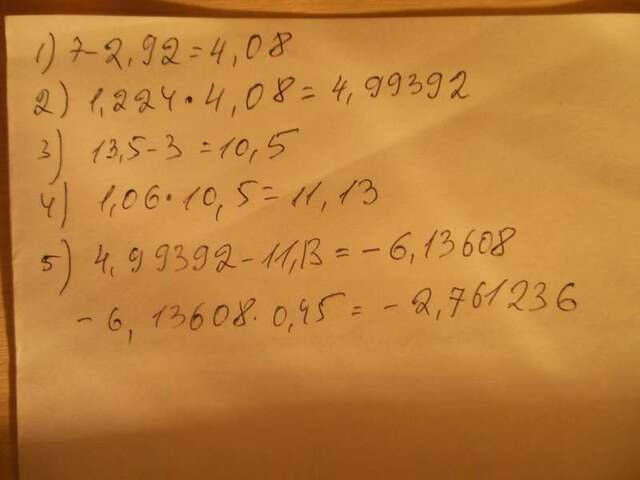 1) 7-2,92=4,08
2) 1,224·4,08=4,99392
3) 13,5-3=10,5
4) 1,06·10,5=11,13
5) 4,99392-11,13=-6,13608
-6,13608·0,45=-2,761236